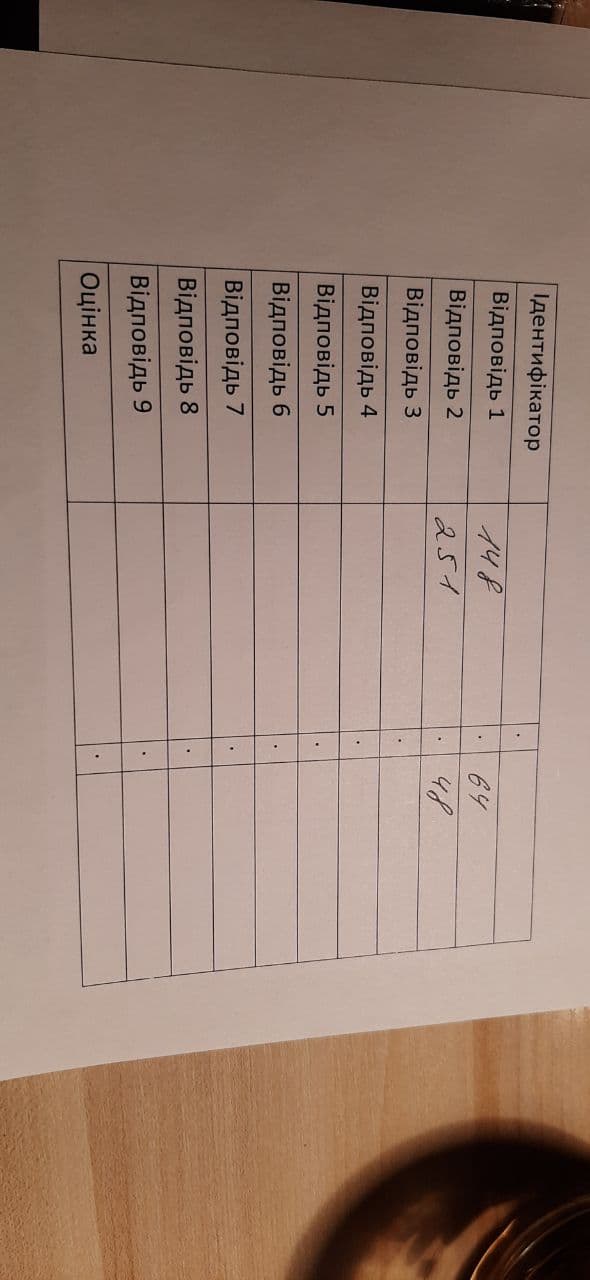 Ідентифікатор .
Відповідь 1 148 . 64
Відповідь 2 251 . 48
Відповідь 3 .
Відповідь 4 .
Відповідь 5 .
Відповідь 6 .
Відповідь 7 .
Відповідь 8 .
Відповідь 9 .
Оцінка .